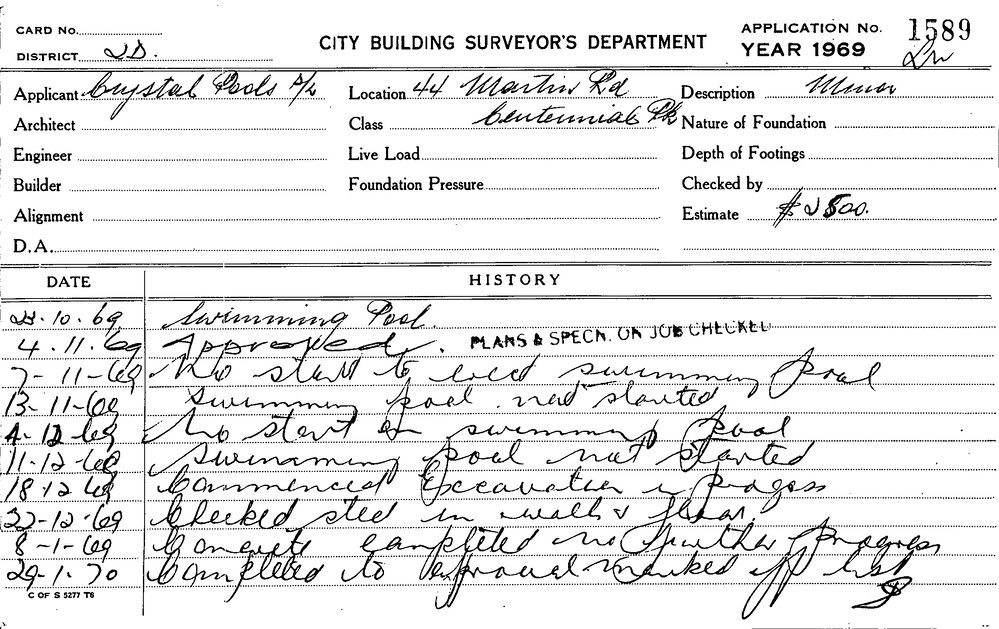 CARD No.
DISTRICT 2D.
CITY BUILDING SURVEYOR'S DEPARTMENT
APPLICATION No. 1589
YEAR 1969
Applicant Crystal Pools P/L
Location 44 Martin Rd
Centennial Pk
Description Minor
Architect
Class
Nature of Foundation
Engineer
Live Load
Depth of Footings
Builder
Foundation Pressure
Checked by
Alignment
Estimate $2500.
D.A.
DATE HISTORY
10.69 Swimming Pool.
4.11.69 Approved. PLANS & SPECN. ON JOB CHECKED
7-11-69 No start to swimming pool
13-11-69 Swimming pool not started
4-12-69 No start on swimming pool
11-12-69 Swimming pool not started
18-12-69 Commenced Excavation in progress
22-12-69 Checked steel in walls & floor.
8-1-69 Concrete completed no further progress
29-1-70 Completed to approval marked off list
C OF S 5277 T6